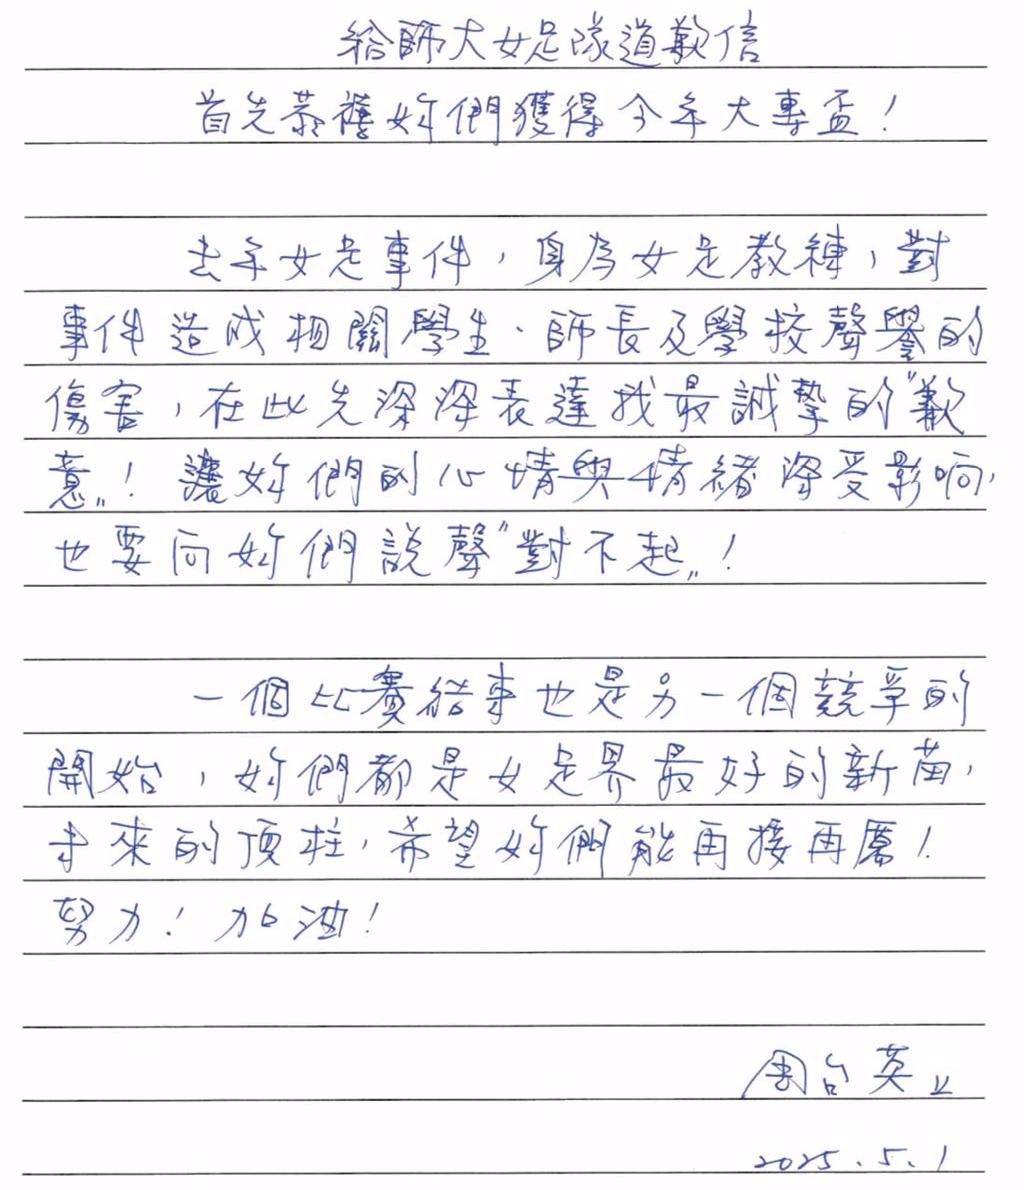 給師大女足隊道歉信
首先恭禧妳們獲得今年大專盃！
去年女足事件，身為女足教練，對
事件造成相關學生、師長及學校聲譽的
傷害，在此先深深表達我最誠摯的"歉
意"！讓妳們的心情與情緒深受影响，
也要向妳們說聲"對不起"！
一個比賽結束也是另一個競爭的
開始，妳們都是女足界最好的新苗，
未來的頂柱，希望妳們能再接再厲！
努力！加油！
周台英 上
2025.5.1